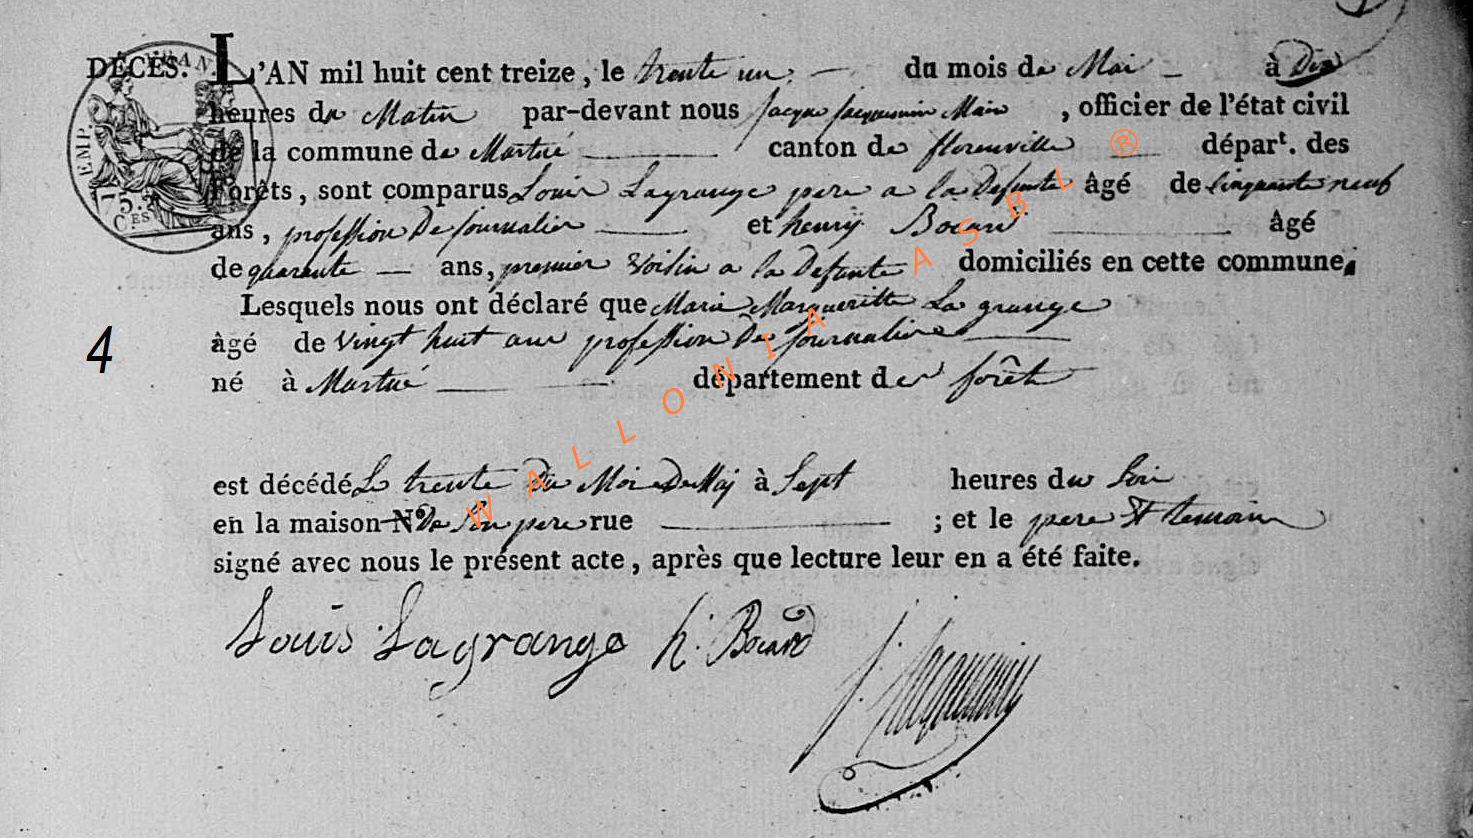 DÉCÈS. L'AN mil huit cent treize, le trente un du mois de Mai à Dix
heures du Matin par-devant nous Jacque Jacquemin Maire, officier de l'état civil
de la commune de Martué canton de florenville départ. des
Forêts, sont comparus Louis Lagrange pere a la Defunte âgé de Cinquante neuf
ans, profession De journalier et henry Bocard âgé
de quarante ans, premier Voisin a la Defunte domiciliés en cette commune.
Lesquels nous ont déclaré que Marie Margueritte La grange
âgé de vingt huit ans profession De journaliere
4
né à Martué département des forêts
est décédé Le trente Du Mois De Maj à Sept heures du Soir
en la maison N° De Son pere rue ; et le pere et temoin
signé avec nous le présent acte, après que lecture leur en a été faite.
Louis Lagrange h. Bocard J. Jacquemin
EMP. FRAN.
75.
CES
WALLONIA ASBL ®